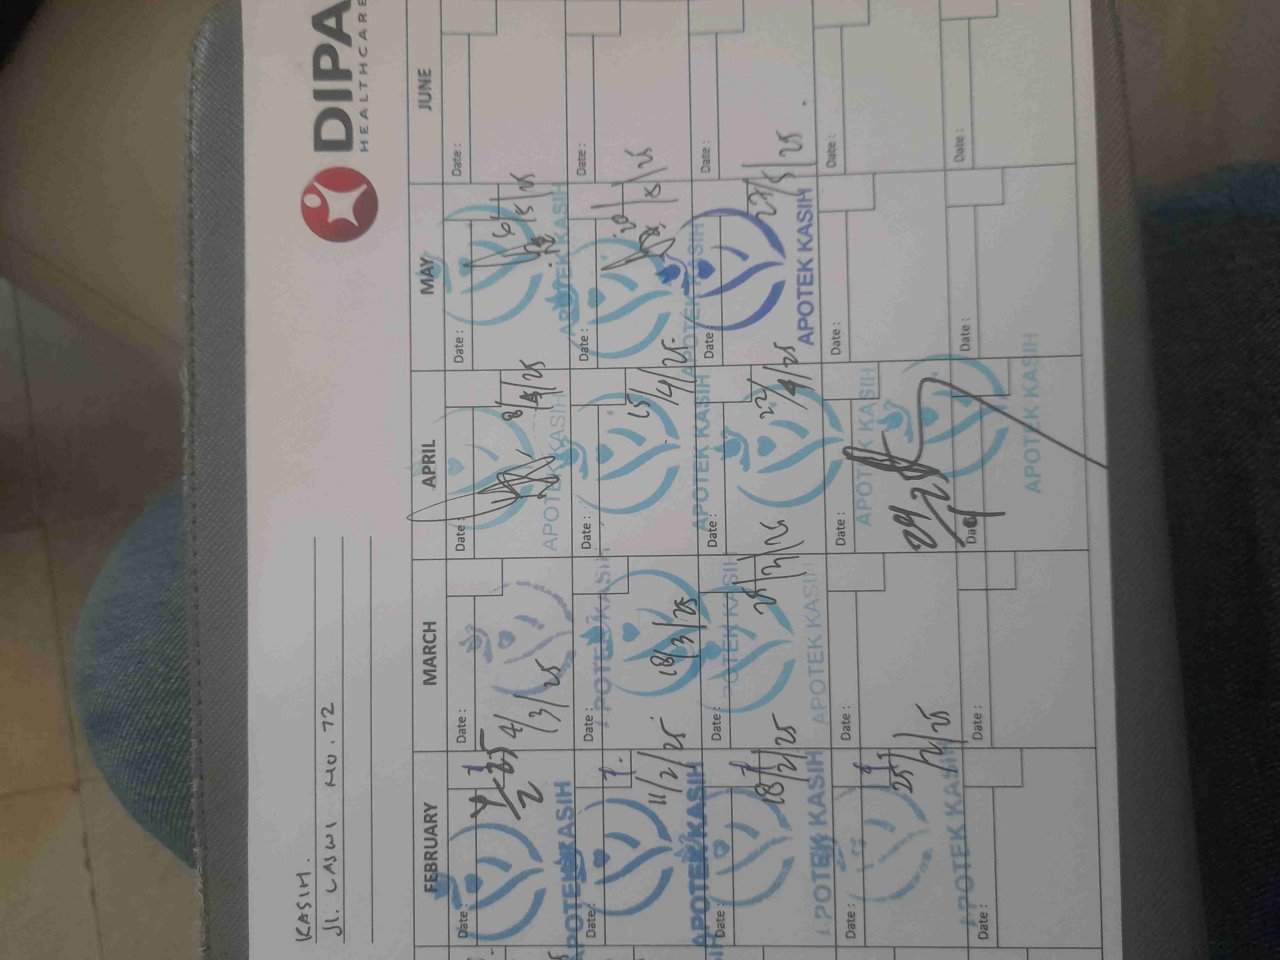 KASIH.
Jl. LASWI NO. 72
DIPA
HEALTHCARE
FEBRUARY MARCH APRIL MAY JUNE
Date: Date: Date: Date: Date:
4/2-25 4/3/25 8/4/25 6/5/25
APOTEK KASIH APOTEK KASIH APOTEK KASIH
Date: Date: Date: Date: Date:
7.
11/2/25 18/3/25 15/4/25. 20/5/25
APOTEK KASIH POTEK KASIH APOTEK KASIH APOTEK KASIH
Date: Date: Date: Date: Date:
18/2/25 25/3/25 22/4/25 27/5/25
POTEK KASIH APOTEK KASIH APOTEK KASIH APOTEK KASIH
Date: Date: Date: Date: Date:
25/2/25 29/4 25
POTEK KASIH APOTEK KASIH
Date: Date: Date: Date: Date: